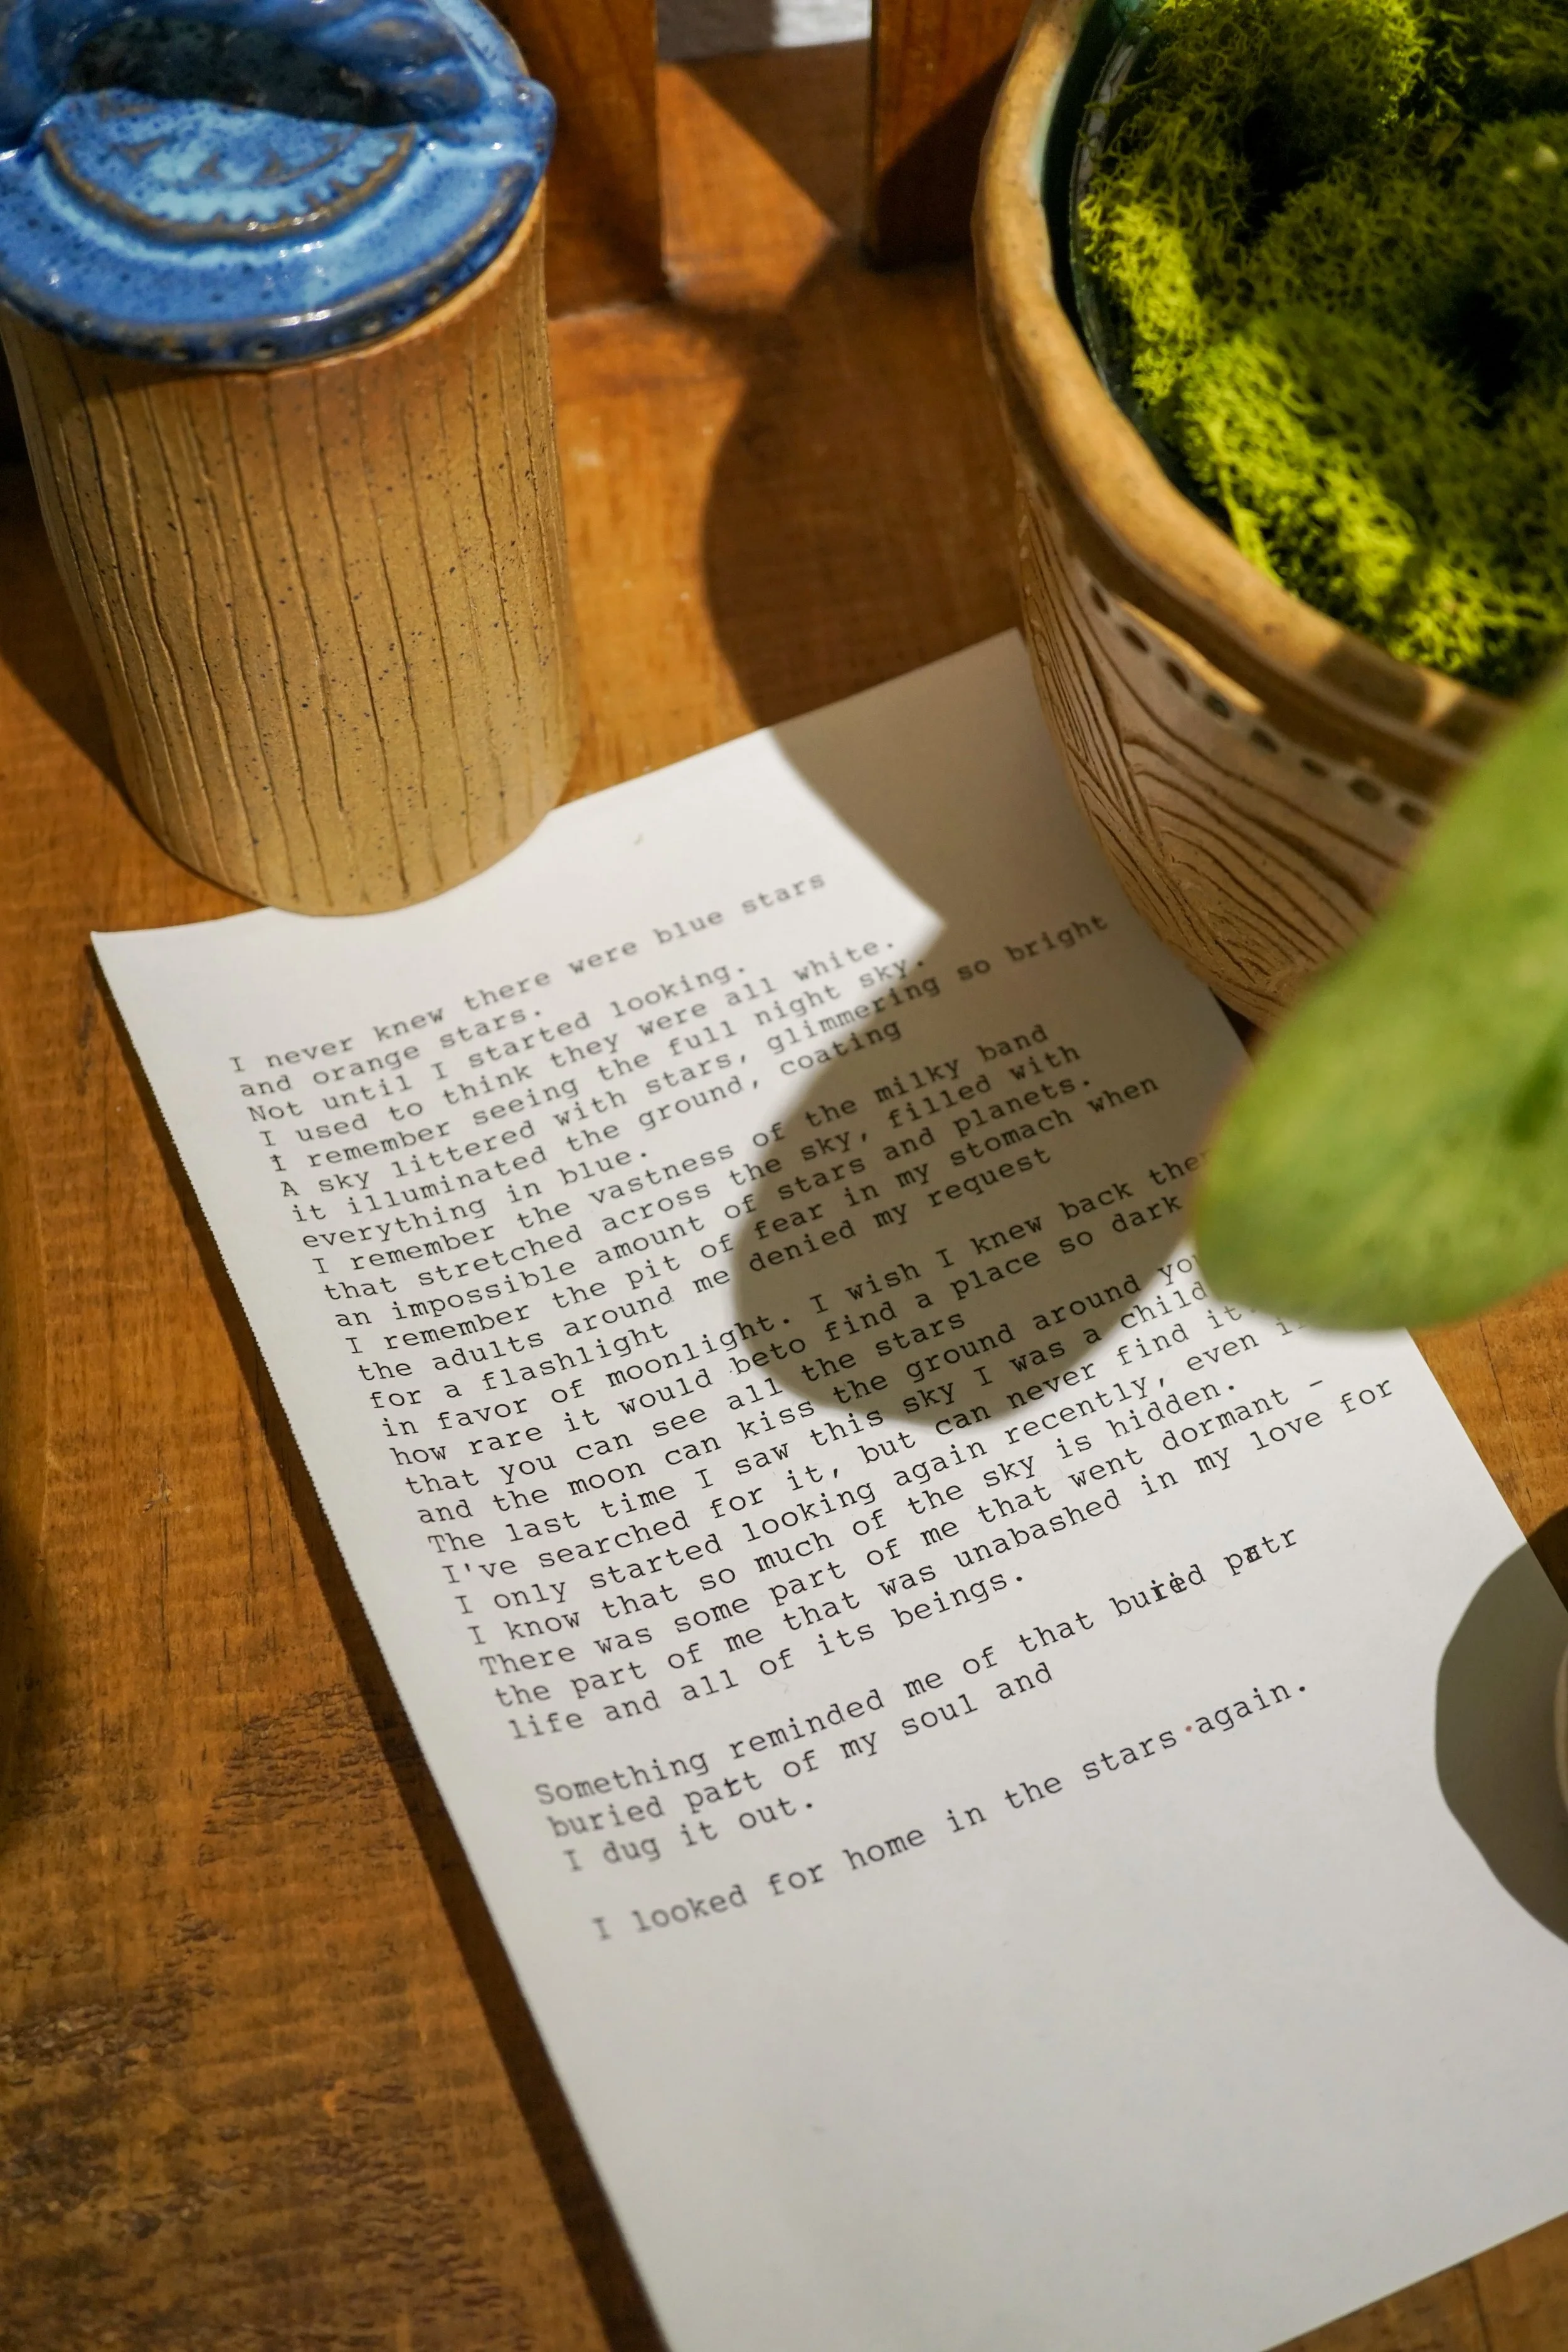 I never knew there were blue stars
and orange stars.
Not until I started looking.
I used to think they were all white.
I remember seeing the full night sky.
A sky littered with stars, glimmering so bright
it illuminated the ground, coating
everything in blue.
I remember the vastness of the milky band
that stretched across the sky, filled with
an impossible amount of stars and planets.
I remember the pit of fear in my stomach when
the adults around me denied my request
for a flashlight
in favor of moonlight. I wish I knew back
how rare it would beto find a place so dark
that you can see all the stars
and the moon can kiss the ground around
The last time I saw this sky I was a child
I've searched for it, but can never find
I only started looking again recently, even
I know that so much of the sky is hidden.
There was some part of me that went dormant -
the part of me that was unabashed in my love for
life and all of its beings.
Something reminded me of that buried patr
buried part of my soul and
I dug it out.
I looked for home in the stars again.